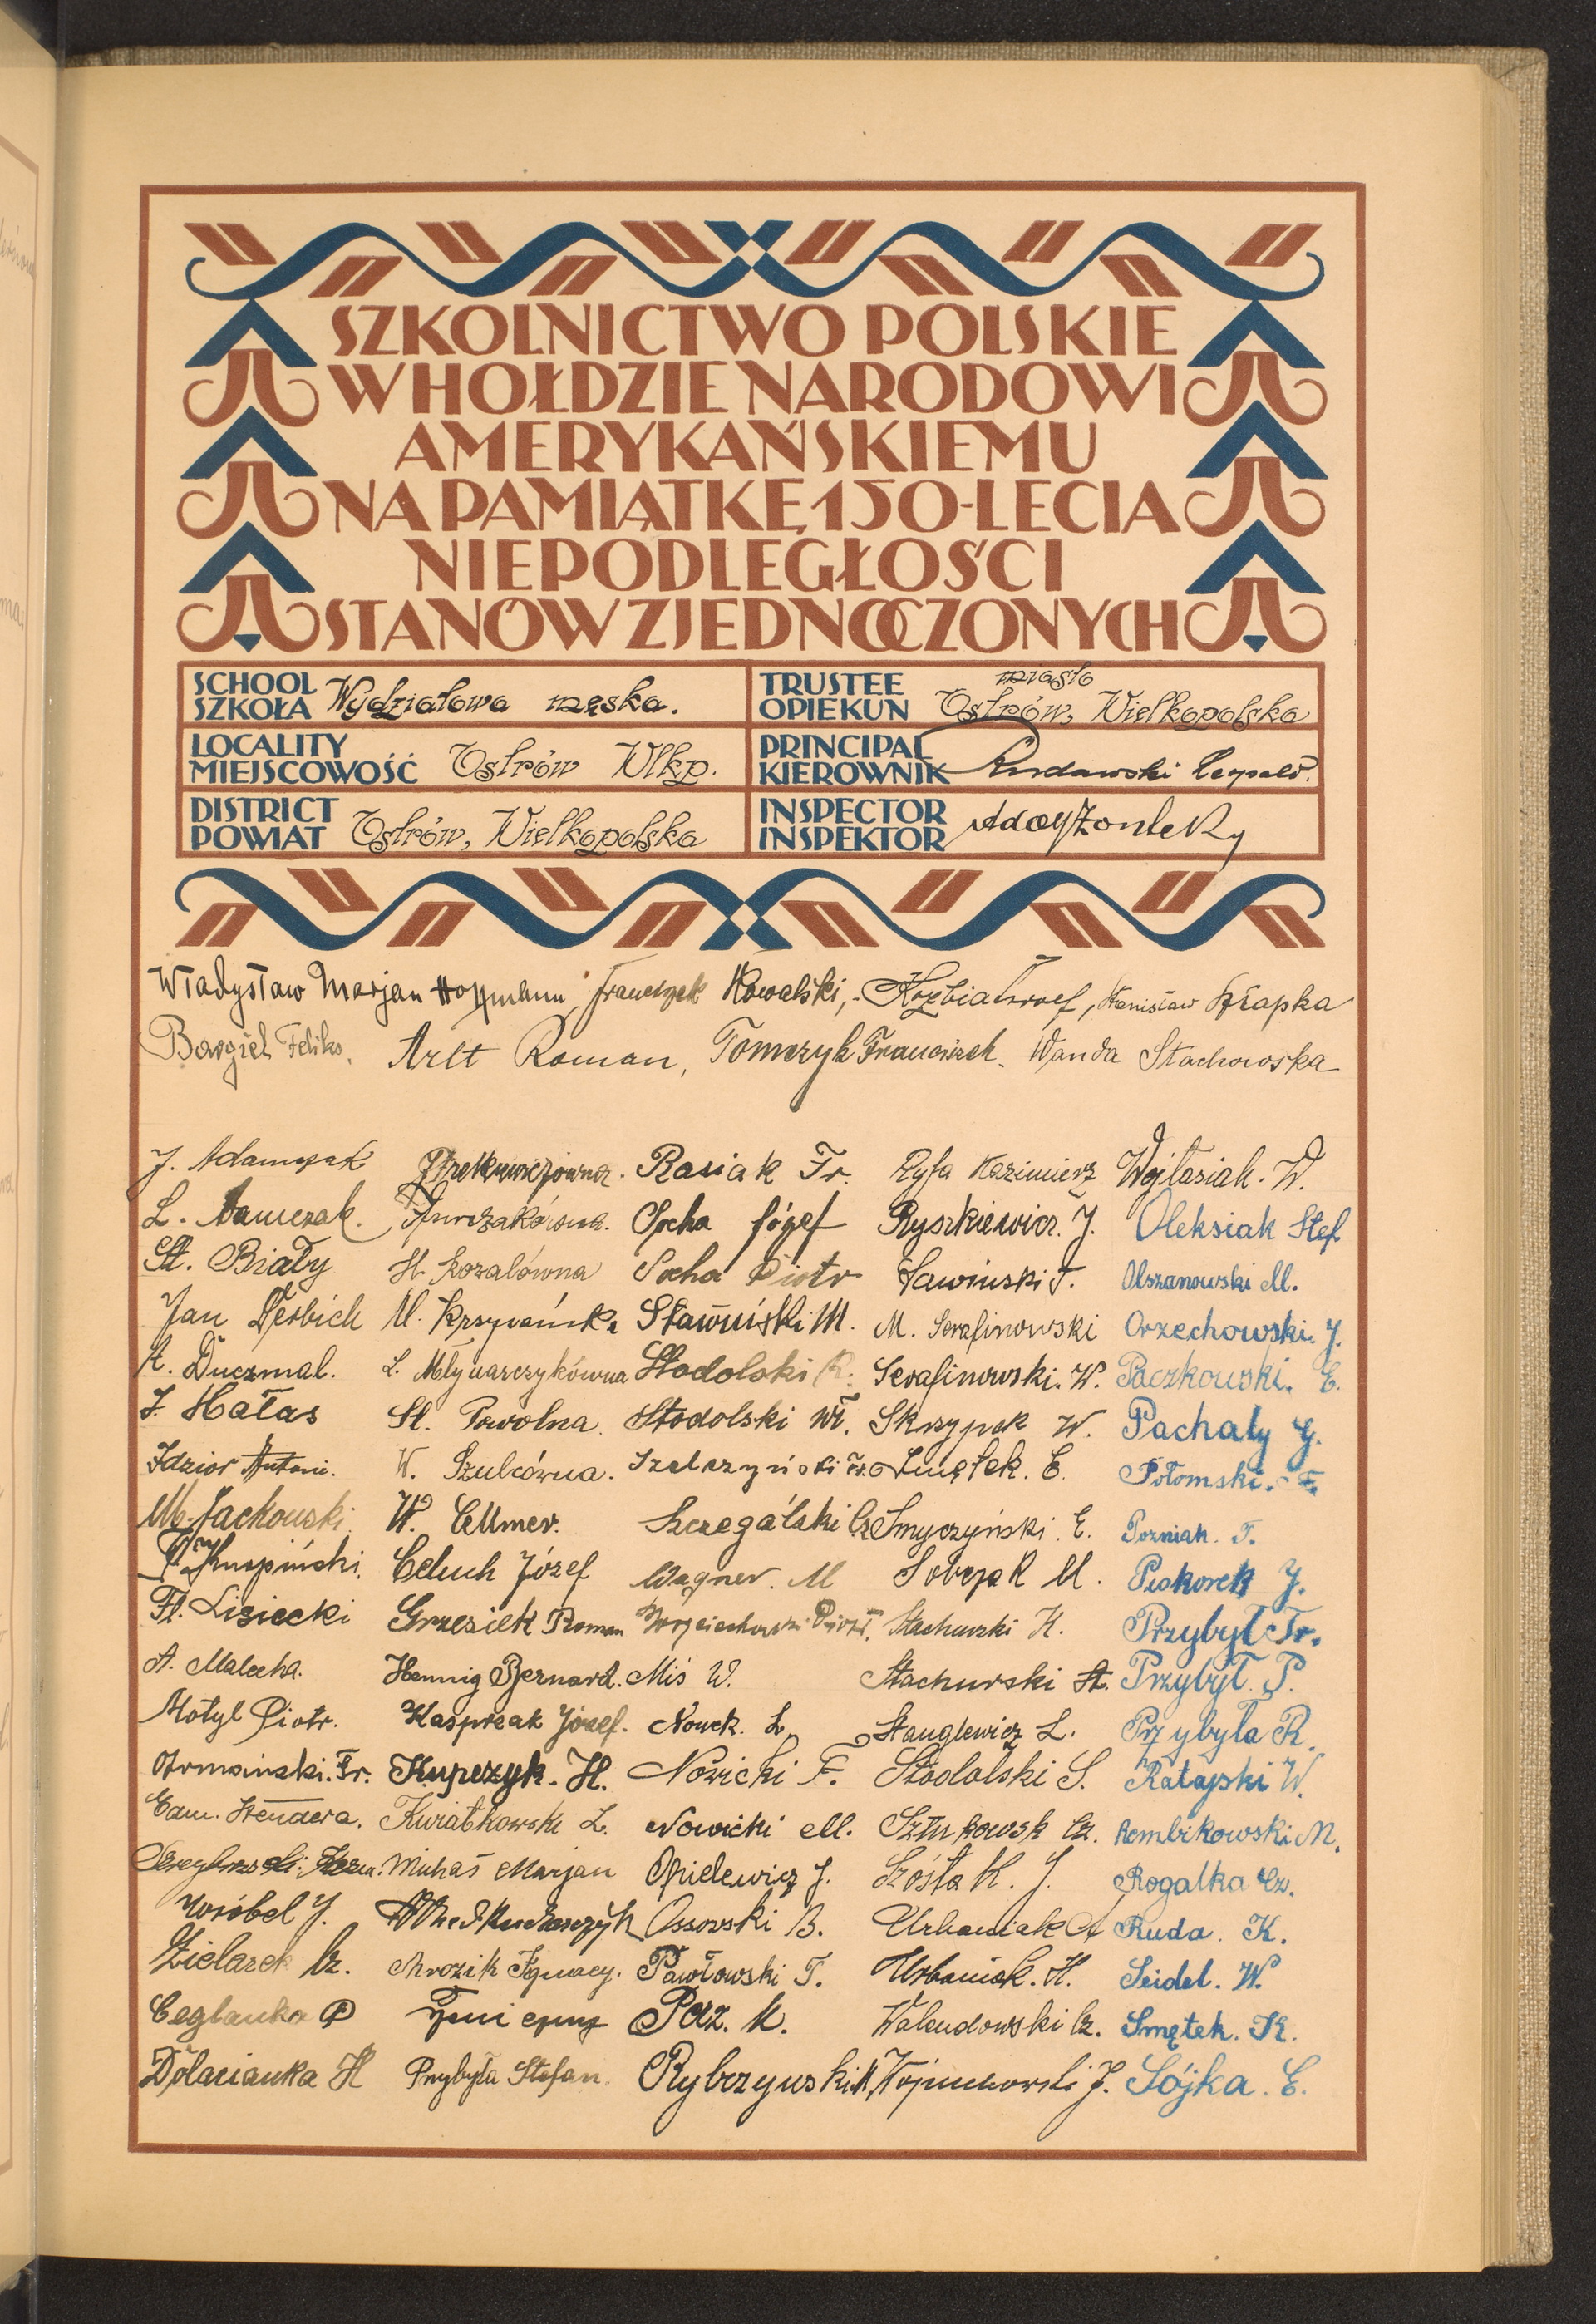 SZKOLNICTWO POLSKIE
W HOŁDZIE NARODOWI
AMERYKAŃSKIEMU
NA PAMIĄTKĘ 150-LECIA
NIEPODLEGŁOŚCI
STANÓW ZJEDNOCZONYCH
SCHOOL
SZKOŁA Wydziałowa męska.
TRUSTEE miasto
OPIEKUN Ostrów, Wielkopolska
LOCALITY
MIEJSCOWOŚĆ Ostrów Wlkp.
PRINCIPAL
KIEROWNIK Rudawski Leopold.
DISTRICT
POWIAT Ostrów, Wielkopolska
INSPECTOR
INSPEKTOR
Władysław Marjan Hoffmann, Franciszek Kowalski, Stanisław Krapka
Bargiel Feliks, Arlt Roman, Tomczyk Franciszek. Wanda Stachowska
J. Adamczak Rasiak Fr. Ryfa Kazimierz Wojtasiak. W.
L. Socha Józef Ryszkiewicz. J. Oleksiak Stef
St. Biały H. Kozalówna Socha Piotr Sawiński T. Olszanowski M.
Jan Derbich M. Krzywańska Sławiński M. M. Serafinowski Orzechowski. J.
A. Duczmal. L. Młynarczykówna Stodolski R. Serafinowski. W. Paczkowski. E.
J. Hałas St. Powolna. Stodolski Wł. Skrzypek W. Pachały G.
Idzior Antoni. W. Szulcówna. Szelczyński Fr. Smętek. E. Potomski. F.
M. Jackowski. W. Cellmer. Szczególski Cz. Smyczyński. E. Pozniak. T.
F. Knopiński. Celuch Józef Wagner. M Sobczak M. Piskorek J.
Fl. Lisiecki Grzesiek Roman Wojciechowski Piotr. Stachurski K. Przybył Fr.
A. Malecha. Hennig Bernard. Miś W. Stachurski St. Przybył. P.
Motyl Piotr. Kasprzak Józef. Nowek. L. Stanglewicz L. Przybyła R.
Ormański. Fr. Kupczyk. H. Nowicki F. Stodolski S. Ratajski W.
Edm. Stendera. Kwiatkowski L. Nowicki M. Szturkowsk Cz. Rembikowski M.
Michaś Marjan Opielewicz J. Szóstak. J. Rogalka Cz.
Wróbel J. Ossowski B. Urbaniak A Ruda. K.
Zielarek Cz. Mrozik Ignacy. Pawłowski T. Urbaniak. H. Seidel. W.
Ceglanka P Perz. M. Walendowski Cz. Smętek. K.
Dolacianka H Przybyła Stefan. Rybczyński M Wojciechowski J. Sójka. E.